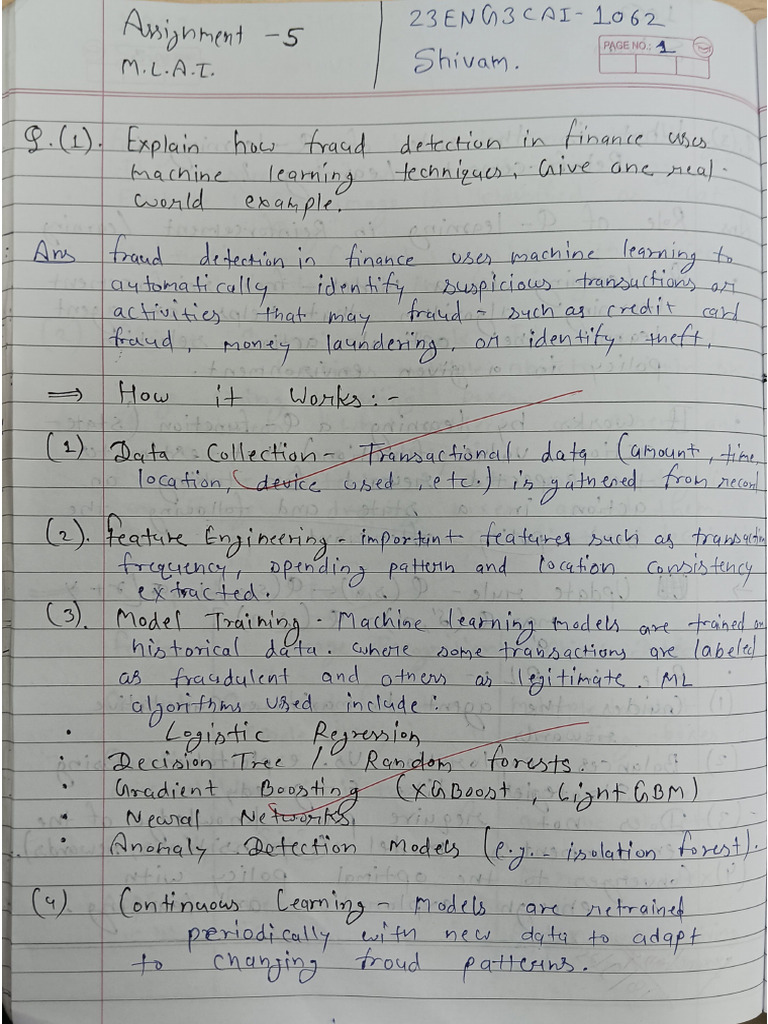 Assignment - 5
M.L.A.I.
23ENG3CAI-1062
Shivam.
PAGE NO.: 1
Q.(1). Explain how fraud detection in finance uses
machine learning techniques, Give one real
world example.
Ans fraud detection in finance uses machine learning to
automatically identify suspicious transactions or
activities that may fraud - such as credit card
fraud, money laundering, or identify theft.
⇒ How it Works:-
(1) Data Collection - Transactional data (amount, time,
location, device used, etc.) is gathered from record
(2). Feature Engineering - important features such as transactin
frequency, spending pattern and location consistency
extracted.
(3). Model Training - Machine learning models are trained on
historical data. where some transactions are labeled
as fraudulent and others as legitimate. ML
algorithms used include:
• Logistic Regression
• Decision Tree / Random forests.
• Gradient Boosting (XGBoost, Light GBM)
• Neural Networks,
• Anomaly Detection Models (e.g.. isolation forest).
(4) Continuous Learning - Models are retrained
periodically with new data to adapt
to changing fraud patterns.